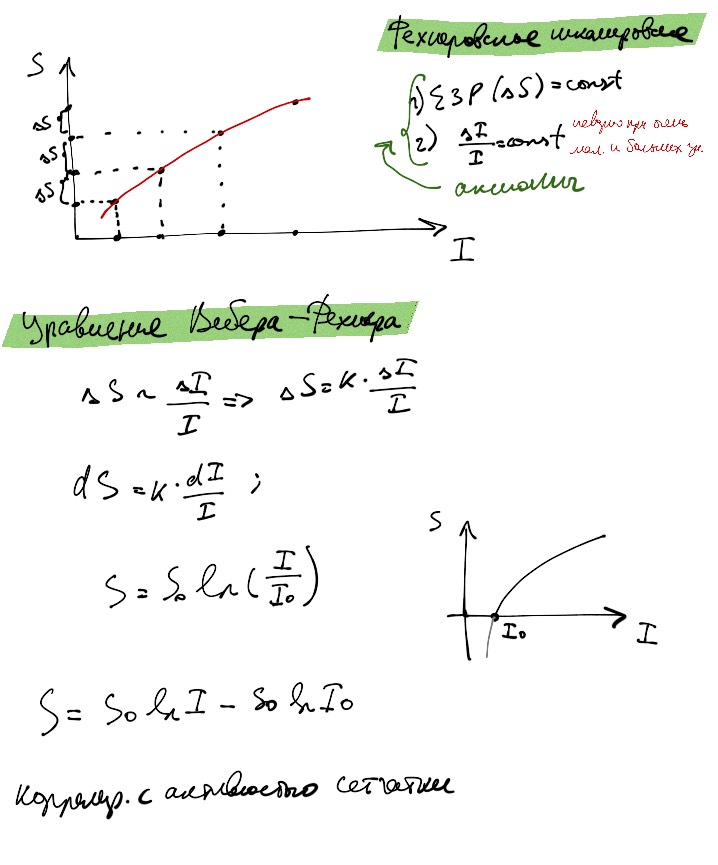 Фехнеровское шкалирование
S
1) ЕЗР (ΔS) = const
2) ΔI/I = const
неверно при очень
мал. и больших ур.
аксиомы
ΔS
ΔS
ΔS
I
Уравнение Вебера-Фехнера
ΔS ~ ΔI/I => ΔS = K · ΔI/I
dS = K · dI/I ;
S = S₀ ln(I/I₀)
S
I₀
I
S = S₀ ln I - S₀ ln I₀
Коррелир. с активностью сетчатки